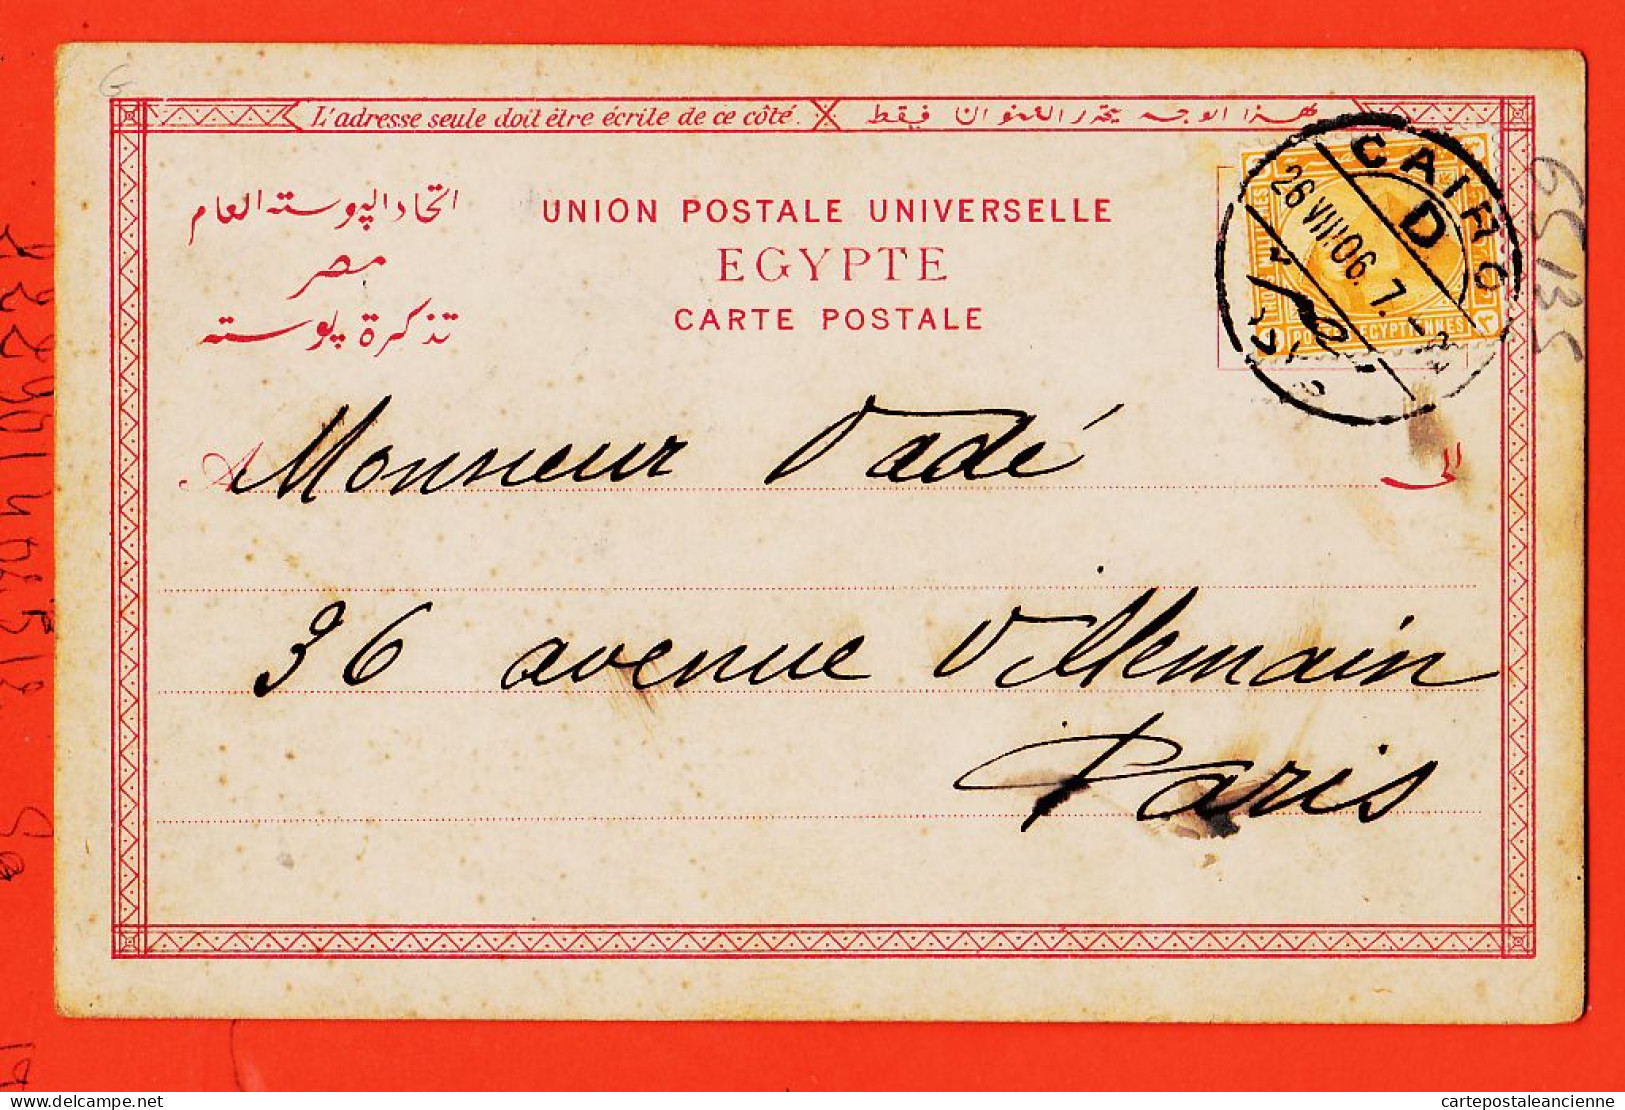 L'adresse seule doit être écrite de ce côté.
هذا الوجه يحرر العنوان فيقط
اتحاد البوسته العام
مصر
تذكرة بوسته
UNION POSTALE UNIVERSELLE
EGYPTE
CARTE POSTALE
CAIRO
D
26 VIII 06. 7
POSTES EGYPTIENNES
A
الى
Monsieur Vadé
36 avenue Villemain
Paris
6S135
delcampe.net
cartepostaleancienne